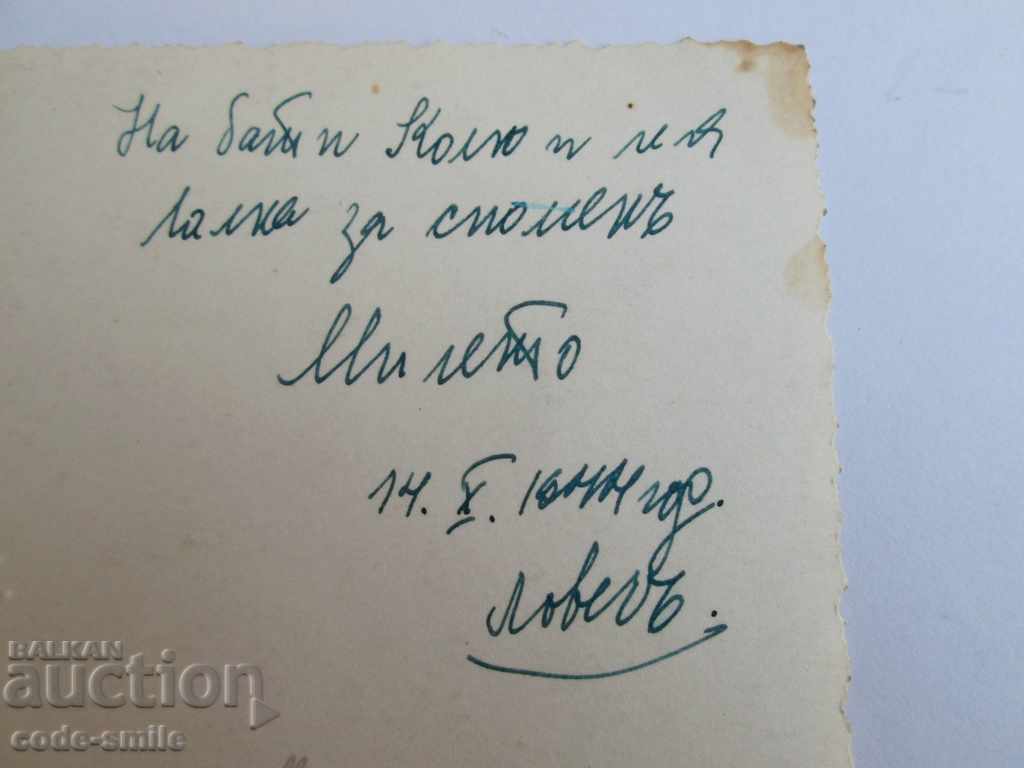 На бати Колю и леля
Галка за споменъ
Милето
14. X. 1944 год.
Ловечъ.
BALKAN
auction
code-smile